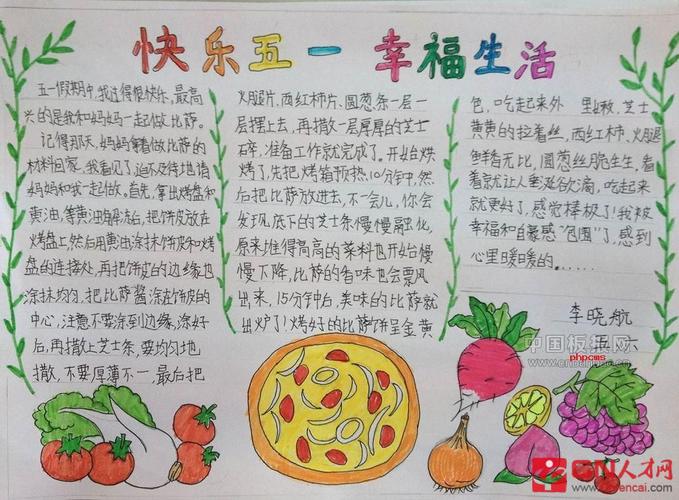 快乐五一 幸福生活
五一假期中,我过得很快乐,最高
兴的是我和妈妈一起做比萨。
记得那天,妈妈拿着做比萨的
材料回家,我看见了,迫不及待地请
妈妈和我一起做。首先,拿出烤盘和
黄油,等黄油融化后,把饼皮放在
烤盘上,然后用黄油涂抹饼皮和烤
盘的连接处,再把饼皮的边缘也
涂抹均匀,把比萨酱涂在饼皮的
中心,注意不要涂到边缘,涂好
后,再撒上芝士条,要均匀地
撒,不要厚薄不一,最后把
火腿片、西红柿片、圆葱条一层一
层摆上去,再撒一层厚厚的芝士
碎,准备工作就完成了。开始烘
烤了,先把烤箱预热10分钟,然
后把比萨放进去,不一会儿,你会
发现底下的芝士条慢慢融化,
原来堆得高高的菜料也开始慢
慢下降,比萨的香味也会飘
出来,15分钟后,美味的比萨就
出炉了!烤好的比萨饼呈金黄
色,吃起来外 里嫩,芝士
黄黄的拉着丝,西红柿、火腿
鲜香无比,圆葱丝脆生生,看
着就让人垂涎欲滴,吃起来
就更好了,感觉棒极了!我被
幸福和自豪感"包围"了,感到
心里暖暖的……
李晓航
五.六
中国板报网
phpcms
CN人才网
cnrencai.com